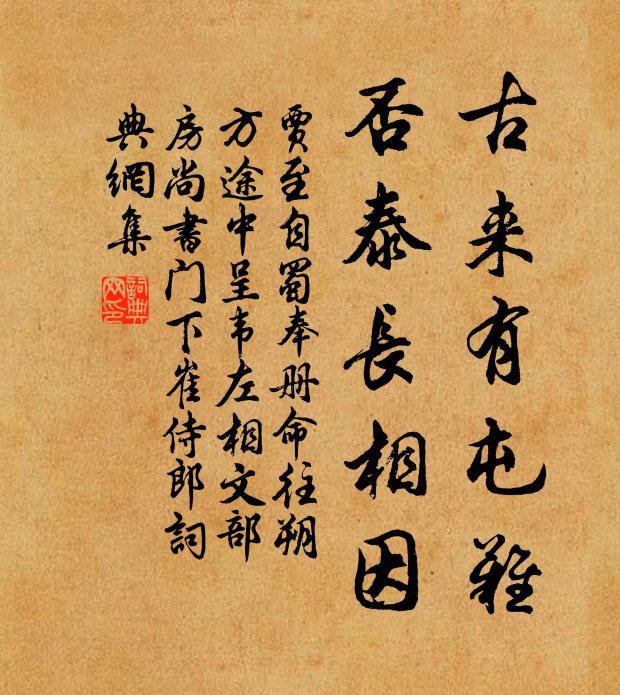 古来有屯難
否泰長相因
賈至自蜀奉册命往朔
方途中呈韦左相文部
房尚書门下崔侍郎詞
典網集
詞典
网印